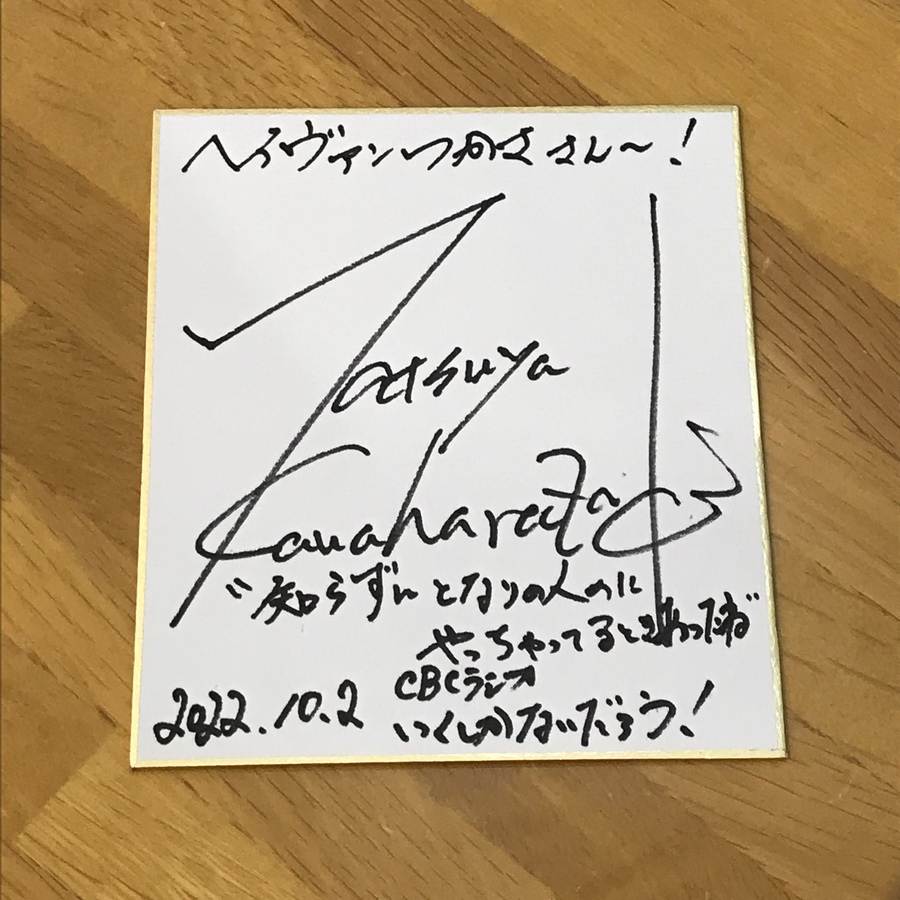 ヘイヴァンつかささん〜!
Tatsuya
Kawahara
知らずにとなりの人のに
やっちゃってると
CBCラジオ
2022.10.2
いくしかないだろう!